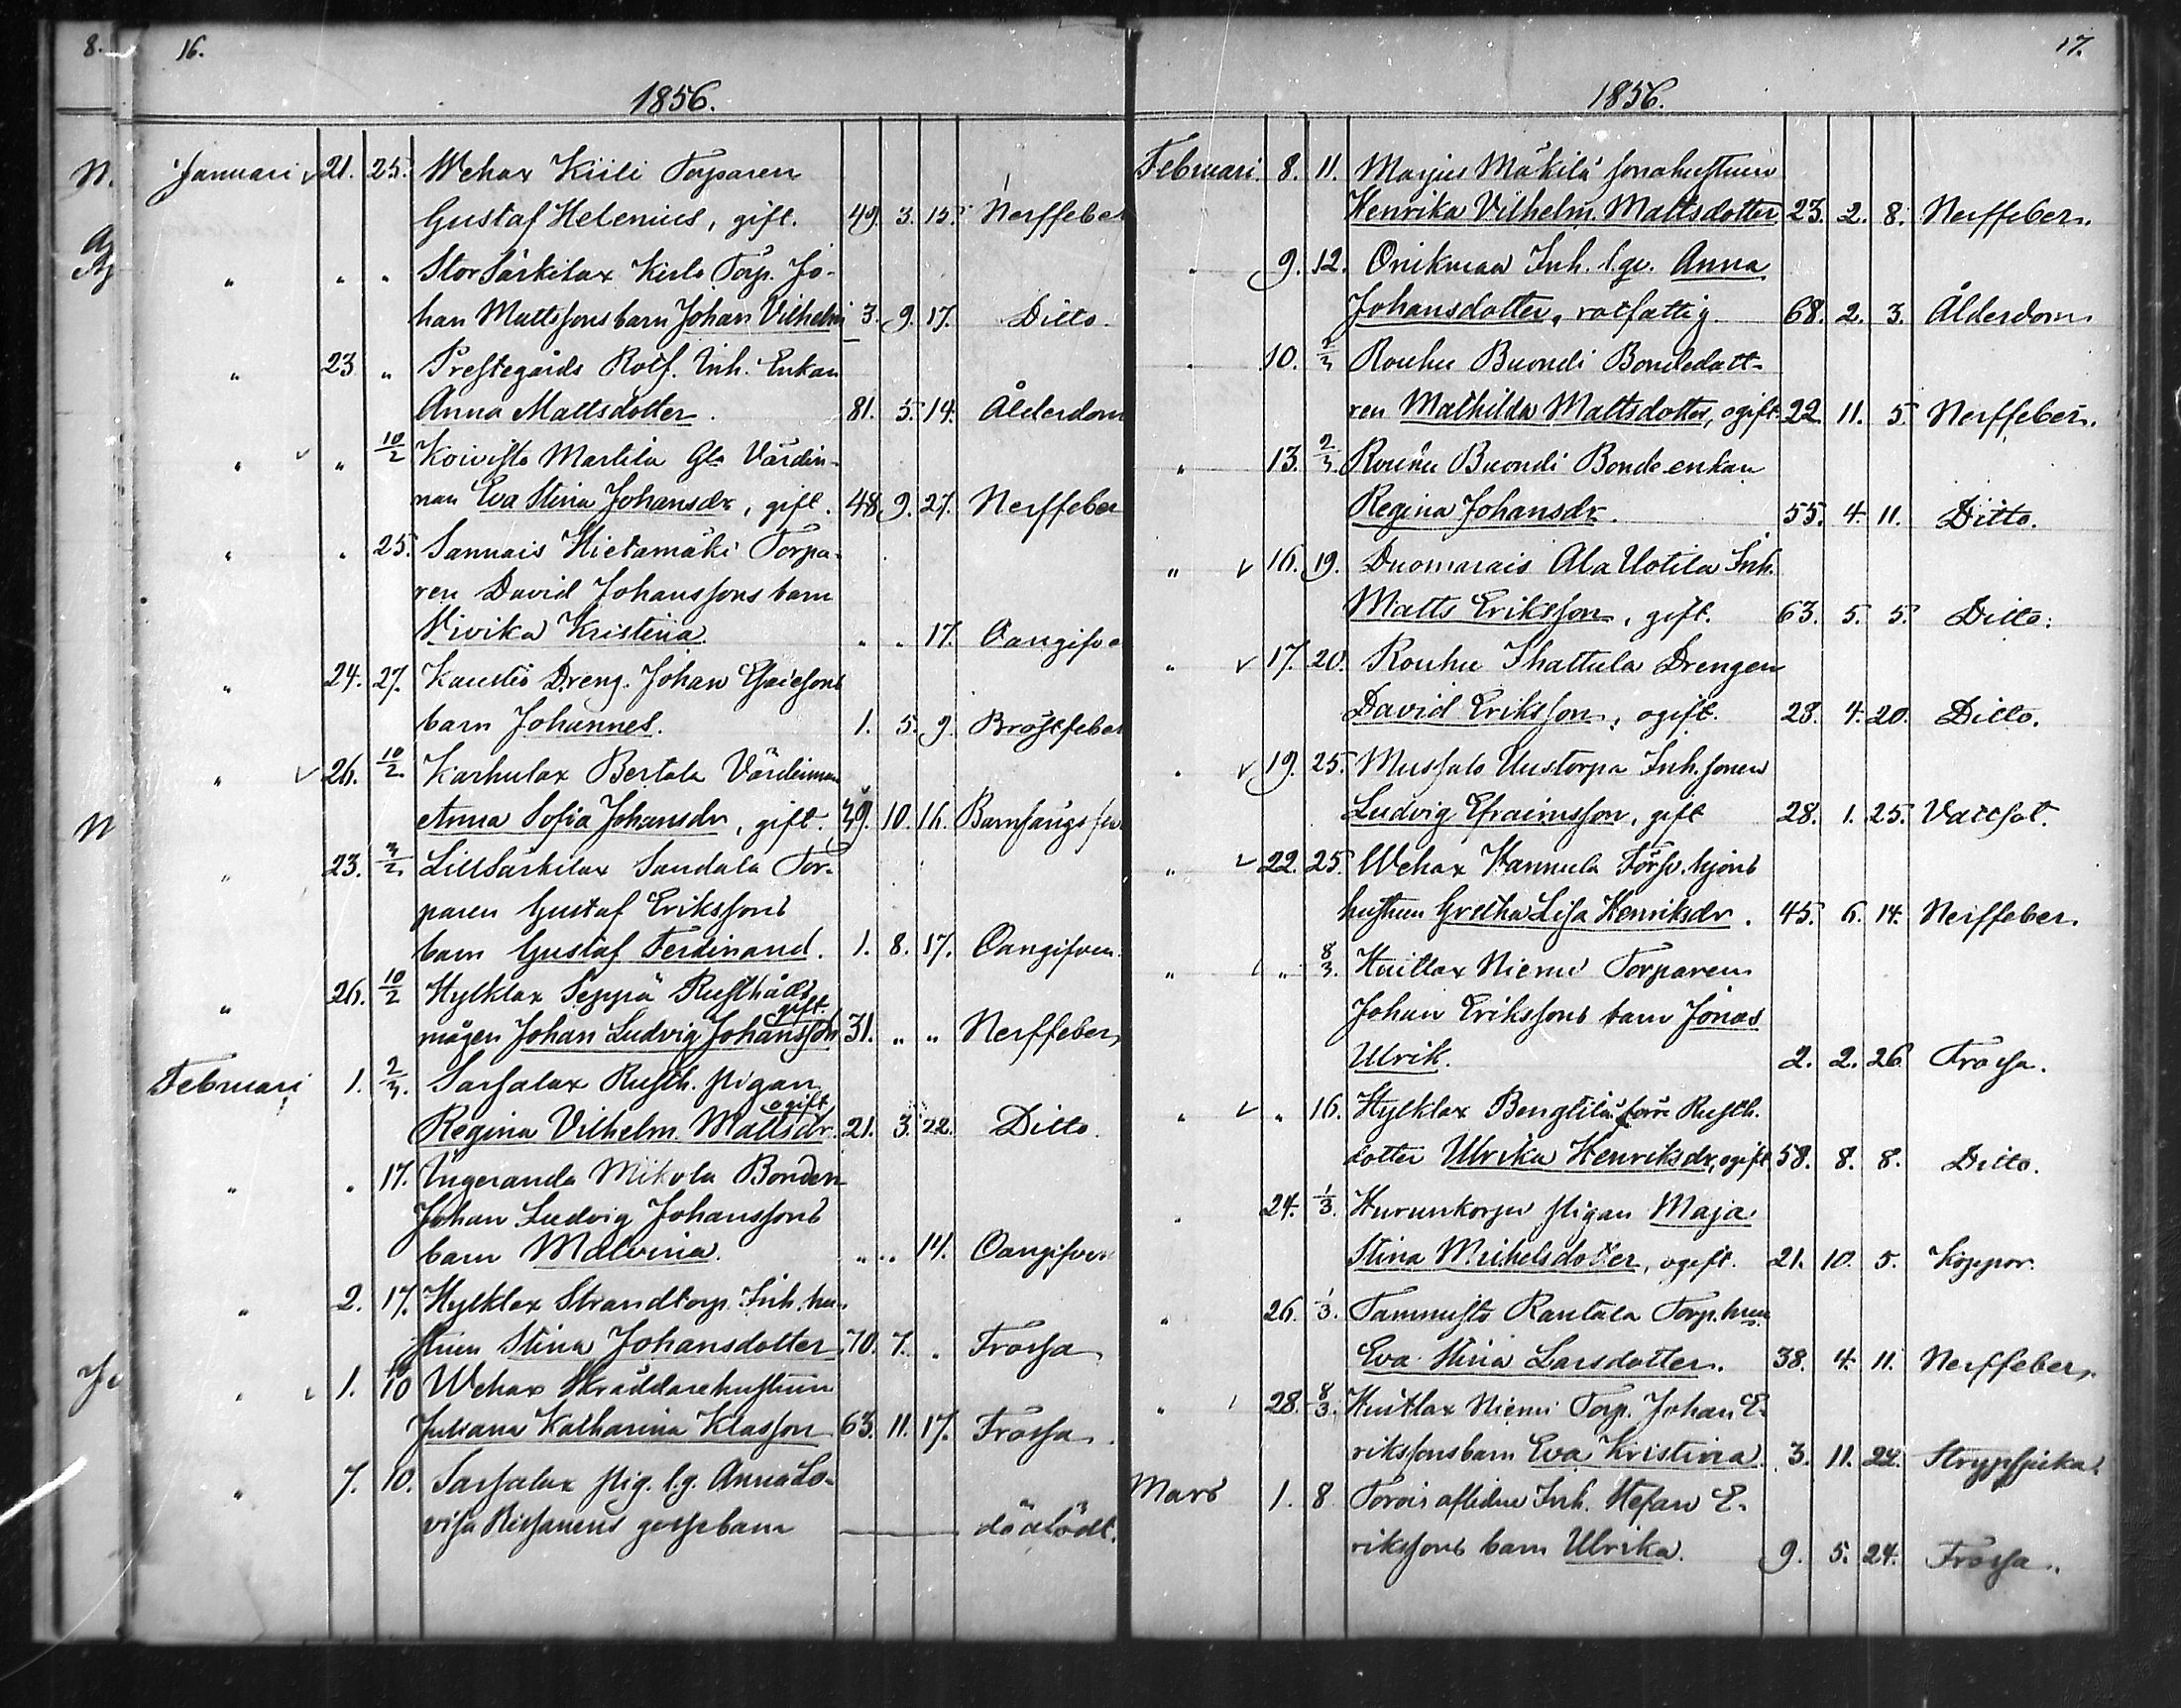 8.
16.
1856.
Januari 21. 25. Wehax Kiili Torparen
Gustaf Helenius, gift. 49. 3. 15. Nerffeber
" " " Stor Särkilax Kierla Torp. Jo-
han Mattssons barn Johan Vilhelm 3. 9. 17. Ditto.
" 23 " Prestegårds Rotf. Inh. Enkan
Anna Mattsdotter. 81. 5. 14. Ålderdom
" " 10/2 Koivisto Martila Gla Värdin-
nan Eva Stina Johansdr, gift. 48. 9. 27. Nerffeber
" " 25. Sannais Hietamäki Torpa-
ren David Johanssons barn
Vivika Kristina " " 17. Oangifve
" 24. 27. Kaustio Dreng. Johan Esaiesons
barn Johannes. 1. 5. 9. Bröstfeber
" 26. 10/2 Karhulax Bertala Värdinnan
Anna Sofia Johansdr, gift. 39. 10. 16. Barnsängsfe
" 23. 3/2 LillSärkilax Sandala Tor-
paren Gustaf Erikssons
barn Gustaf Ferdinand. 1. 8. 17. Oangifven.
" 26. 10/2 Hylklax Seppä Rusthålls
gift.
mågen Johan Ludvig Johansson 31. " " Nerffeber,
Februari 1. 2/3. Sarsalax Rusth. pigan
ogift
Regina Vilhelm. Mattsdr. 21. 3. 22. Ditto.
" " 17. Ingeranda Mikola Bonden
Johan Ludvig Johanssons
barn Malvina. " " 14. Oangifven
" 2. 17. Hylklax Strandtorp. Inh. hu-
strun Stina Johansdotter 70. 7. " Frossa
" 1. 10 Wehax Skräddarehustrun
Juliana Katharina Klasson 63. 11. 17. Frossa.
" 7. 10. Sarsalax pig. l.g. Anna Lo-
visa gossebarn dödfödt.
17.
1856.
Februari. 8. 11. Marjus Mäkilä sonahustrun
Henrika Vilhelm. Mattsdotter 23. 2. 8. Nerffeber.
" 9. 12. Onikmaa Inh. l.qv. Anna
Johansdotter, rotfattig. 68. 2. 3. Ålderdom
" 10. 2/3 Rouhu Buondi Bondedott-
ren Mathilda Mattsdotter, ogift 22. 11. 5. Nerffeber.
" 13. 2/3. Rouhu Buondi Bonde enkan
Regina Johansdr. 55. 4. 11. Ditto.
" 16. 19. Duomarais Ala Uotila Inh.
Matts Eriksson, gift. 63. 5. 5. Ditto.
" 17. 20. Rouhu Thattula Drengen
David Eriksson, ogift. 28. 4. 20. Ditto.
" 19. 25. Mussalo Uustorpa Inh. sonen
Ludvig Efraimsson, gift 28. 1. 25. Vattsot.
" 22. 25. Wehax Hannula Försv. hjons
hustrun Gretha Lisa Henriksdr. 45. 6. 14. Nerffeber.
" " 8/3. Haitlax Niemi Torparen
Johan Erikssons barn Jonas
Ulrik. 2. 2. 26. Frossa.
" " 16. Hylklax Bengtilä förre Rusth.
dotter Ulrika Henriksdr, ogift 58. 8. 8. Ditto.
" 24. 1/3. Hurunkorpi pigan Maja
Stina Michelsdotter, ogift. 21. 10. 5. Koppor.
" 26. 1/3. Tammisto Rantala Torp. hun
Eva Stina Larsdotter. 38. 4. 11. Nerffeber.
" 28. 8/3. Haitlax Niemi Torp. Johan E-
rikssons barn Eva Kristina. 3. 11. 22. Strypsjuka.
Mars 1. 8 Torois aflidne Inh. Stefan E-
rikssons barn Ulrika. 9. 5. 24. Frossa.